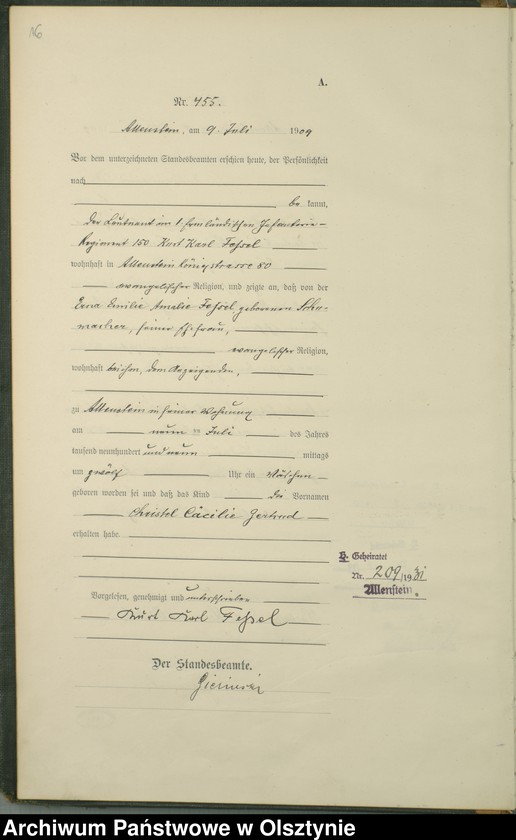 16
A.
Nr. 455.
Allenstein, am 9. Juli 1909
Vor dem unterzeichneten Standesbeamten erschien heute, der Persönlichkeit
nach
be kannt,
der Leutnant im 1 Ermländischen Infanterie-
Regiment 150 Kurt Karl Fessel
wohnhaft in Allenstein Königstrasse 80
evangelischer Religion, und zeigte an, daß von der
Erna Emilie Amalie Fessel geborenen Schu-
macher, seiner Ehefrau,
evangelischer Religion,
wohnhaft bei ihm, dem Anzeigenden,
zu Allenstein in seiner Wohnung
am neun ten Juli des Jahres
tausend neunhundert und neun mittags
um zwölf Uhr ein Mädchen
geboren worden sei und daß das Kind die Vornamen
Christel Cäcilie Gertrud
erhalten habe.
H. Geheiratet
Nr. 209/1931
Allenstein.
Vorgelesen, genehmigt und unterschrieben
Kurt Karl Fessel
Der Standesbeamte.
Archiwum Państwowe w Olsztynie